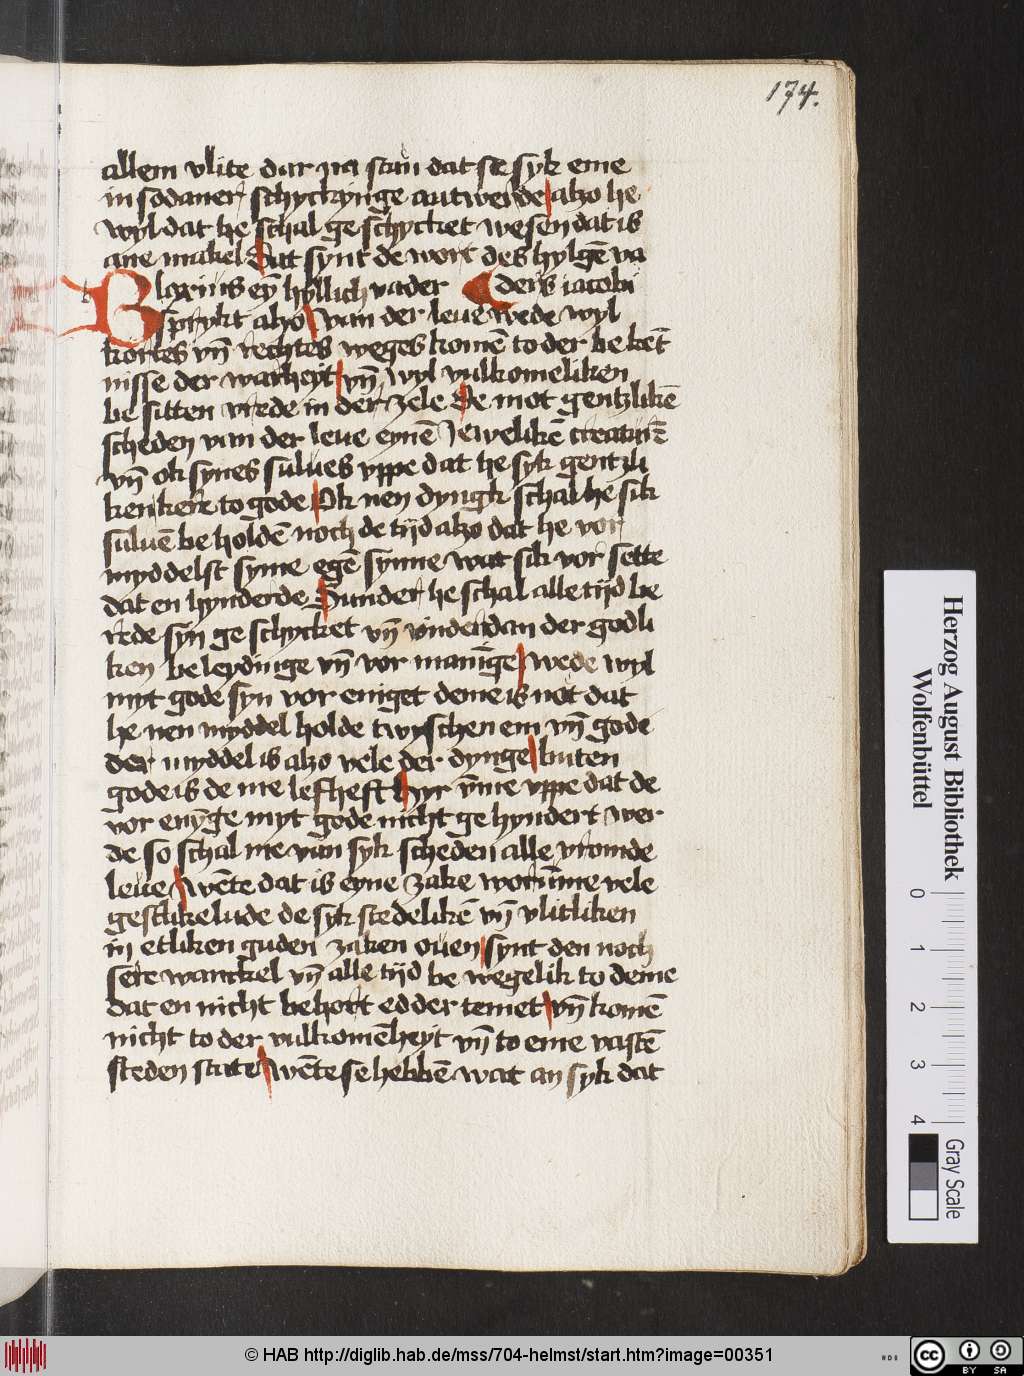 174.
allem vlite dar na stan dat se syk eme
in sodaner schyckynge antwerde also he
wyl dat he schal ge schycket wesen dat is
ane mukel Dat synt de wort des hylgē va
ders iacobi
Blorius eȳ hyllich vader
sprykt also Wan der leue wede wyl
kortes vn̄ rechtes weges komē to der be kēt
nisse der warheyt vn̄ wyl vulkomeliken
be sitten vrede in der zele De mot gentzlikē
scheden van der leue eynē Jewelikē creatur
vn̄ ok synes sulues vppe dat he syk gentzli
ken kere to gode Ok nen dyngk schal he sik
suluē be holdē noch de tijd also dat he vor
myddelst syme egē synne wat sik vor sette
dat en hynderde Sunder he schal alle tijd be
rede syn ge schycket vn̄ vinden dan der godli
ken be leydinge vn̄ vor maninge wede wyl
myt gode syn vor eniget deme is not dat
he nen myddel holde twyschen em vn̄ gode
der myddel is also vele der dynge buten
gode is de me lefheft Hyr v̄me vppe dat de
vor enyge myt gode nicht ge hyndert wer
de so schal me van syk scheden alle vromde
leue Wēte dat is eyne zake worūme vele
gestlike lude de syk stedelikē vn̄ vlitliken
in etliken guden zaken ouen synt den noch
sere wanckel vn̄ alle tijd be wegelik to deme
dat en nicht behort edder temet vn̄ komē
nicht to der vulkomēheyt vn̄ to eme vastē
steden state Wēte se hebbē wat an syk dat
Herzog August Bibliothek
Wolfenbüttel
0 1 2 3 4
Gray Scale
© HAB http://diglib.hab.de/mss/704-helmst/start.htm?image=00351
cc BY SA